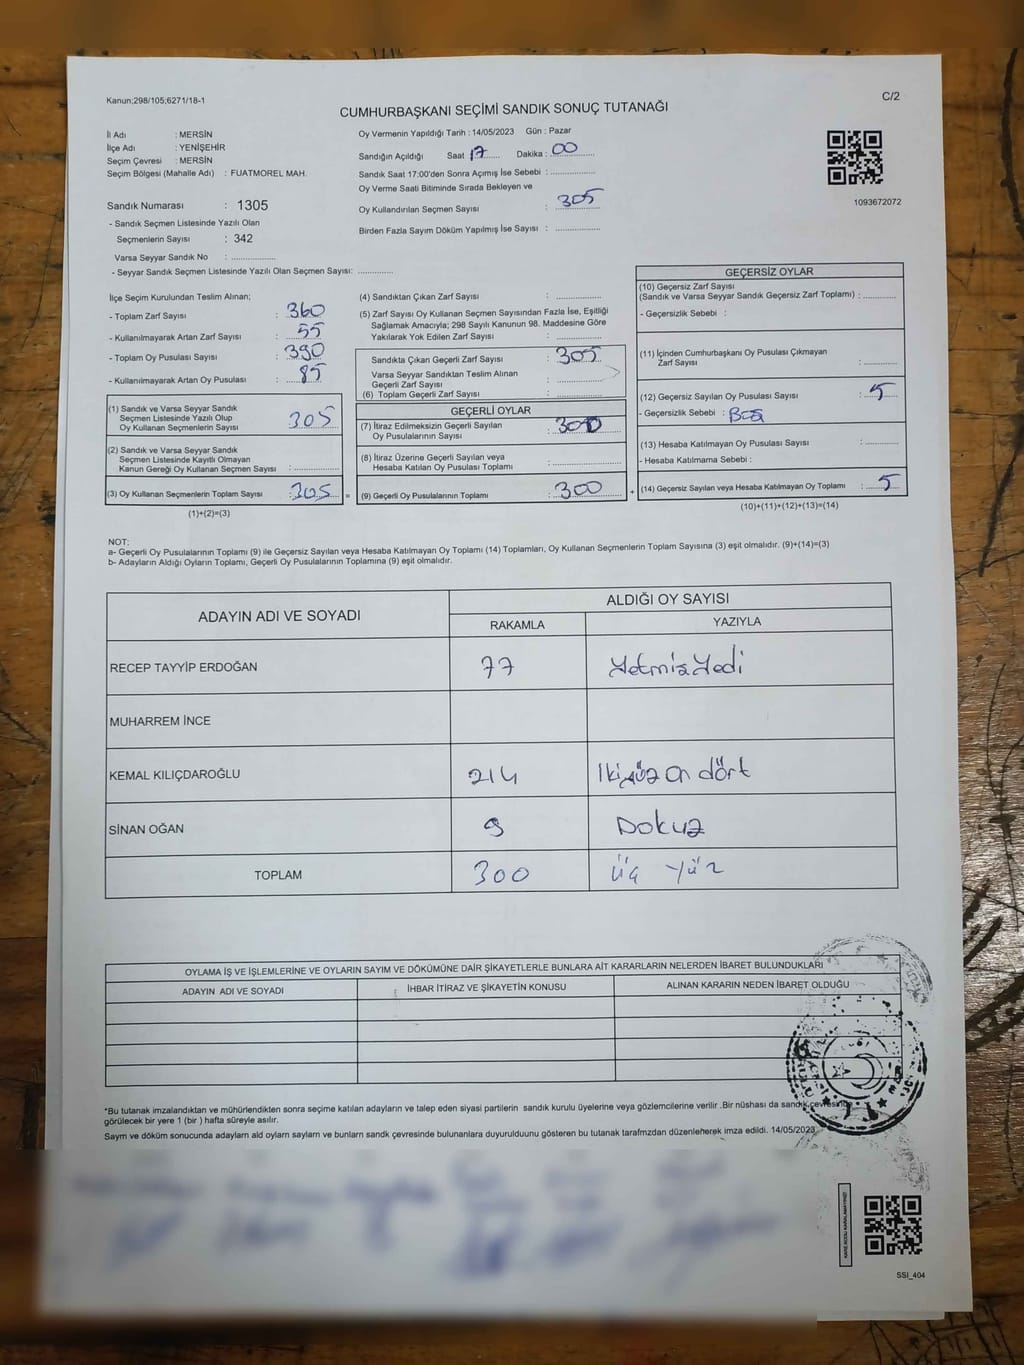 Kanun;298/105;6271/18-1
C/2
CUMHURBAŞKANI SEÇİMİ SANDIK SONUÇ TUTANAĞI
İl Adı : MERSİN
İlçe Adı : YENİŞEHİR
Seçim Çevresi : MERSİN
Seçim Bölgesi (Mahalle Adı) : FUATMOREL MAH.
Sandık Numarası : 1305
- Sandık Seçmen Listesinde Yazılı Olan
Seçmenlerin Sayısı : 342
Varsa Seyyar Sandık No : ....................
- Seyyar Sandık Seçmen Listesinde Yazılı Olan Seçmen Sayısı: ..............
Oy Vermenin Yapıldığı Tarih : 14/05/2023 Gün : Pazar
Sandığın Açıldığı Saat 17 Dakika : 00
Sandık Saat 17:00'den Sonra Açımış İse Sebebi : ..................
Oy Verme Saati Bitiminde Sırada Bekleyen ve
Oy Kullandırılan Seçmen Sayısı : 305
Birden Fazla Sayım Döküm Yapılmış İse Sayısı : ..................
1093672072
İlçe Seçim Kurulundan Teslim Alınan;
- Toplam Zarf Sayısı : 360
- Kullanılmayarak Artan Zarf Sayısı : 55
- Toplam Oy Pusulası Sayısı : 390
- Kullanılmayarak Artan Oy Pusulası : 85
(1) Sandık ve Varsa Seyyar Sandık
Seçmen Listesinde Yazılı Olup
Oy Kullanan Seçmenlerin Sayısı 305
(2) Sandık ve Varsa Seyyar Sandık
Seçmen Listesinde Kayıtlı Olmayan
Kanun Gereği Oy Kullanan Seçmen Sayısı : ..................
(3) Oy Kullanan Seçmenlerin Toplam Sayısı : 305 =
(1)+(2)=(3)
(4) Sandıktan Çıkan Zarf Sayısı : ..................
(5) Zarf Sayısı Oy Kullanan Seçmen Sayısından Fazla İse, Eşitliği
Sağlamak Amacıyla; 298 Sayılı Kanunun 98. Maddesine Göre
Yakılarak Yok Edilen Zarf Sayısı : ..................
Sandıkta Çıkan Geçerli Zarf Sayısı : 305
Varsa Seyyar Sandıktan Teslim Alınan
Geçerli Zarf Sayısı : ..................
(6) Toplam Geçerli Zarf Sayısı : ..................
GEÇERLİ OYLAR
(7) İtiraz Edilmeksizin Geçerli Sayılan
Oy Pusulalarının Sayısı : 300
(8) İtiraz Üzerine Geçerli Sayılan veya
Hesaba Katılan Oy Pusulası Toplamı : ..................
(9) Geçerli Oy Pusulalarının Toplamı : 300 +
GEÇERSİZ OYLAR
(10) Geçersiz Zarf Sayısı
(Sandık ve Varsa Seyyar Sandık Geçersiz Zarf Toplamı) : .............
- Geçersizlik Sebebi :
(11) İçinden Cumhurbaşkanı Oy Pusulası Çıkmayan
Zarf Sayısı : .............
(12) Geçersiz Sayılan Oy Pusulası Sayısı : 5
- Geçersizlik Sebebi :
(13) Hesaba Katılmayan Oy Pusulası Sayısı : .............
- Hesaba Katılmama Sebebi :
(14) Geçersiz Sayılan veya Hesaba Katılmayan Oy Toplamı : 5
(10)+(11)+(12)+(13)=(14)
NOT:
a- Geçerli Oy Pusulalarının Toplamı (9) ile Geçersiz Sayılan veya Hesaba Katılmayan Oy Toplamı (14) Toplamları, Oy Kullanan Seçmenlerin Toplam Sayısına (3) eşit olmalıdır. (9)+(14)=(3)
b- Adayların Aldığı Oyların Toplamı, Geçerli Oy Pusulalarının Toplamına (9) eşit olmalıdır.
ADAYIN ADI VE SOYADI ALDIĞI OY SAYISI
RAKAMLA YAZIYLA
RECEP TAYYİP ERDOĞAN 77 Yetmiş Yedi
MUHARREM İNCE
KEMAL KILIÇDAROĞLU 214 İkiyüz on dört
SİNAN OĞAN 9 Dokuz
TOPLAM 300 Üç yüz
OYLAMA İŞ VE İŞLEMLERİNE VE OYLARIN SAYIM VE DÖKÜMÜNE DAİR ŞİKAYETLERLE BUNLARA AİT KARARLARIN NELERDEN İBARET BULUNDUKLARI
ADAYIN ADI VE SOYADI İHBAR İTİRAZ VE ŞİKAYETİN KONUSU ALINAN KARARIN NEDEN İBARET OLDUĞU
*Bu tutanak imzalandıktan ve mühürlendikten sonra seçime katılan adayların ve talep eden siyasi partilerin sandık kurulu üyelerine veya gözlemcilerine verilir .Bir nüshası da sandık çevresinde
görülecek bir yere 1 (bir ) hafta süreyle asılır.
Saym ve döküm sonucunda adaylarn ald oylarn saylarn ve bunlarn sandk çevresinde bulunanlara duyurulduunu gösteren bu tutanak tarafmzdan düzenlenerek imza edildi. 14/05/2023
KARE KODU KARALAMAYINIZ!
SSI_404